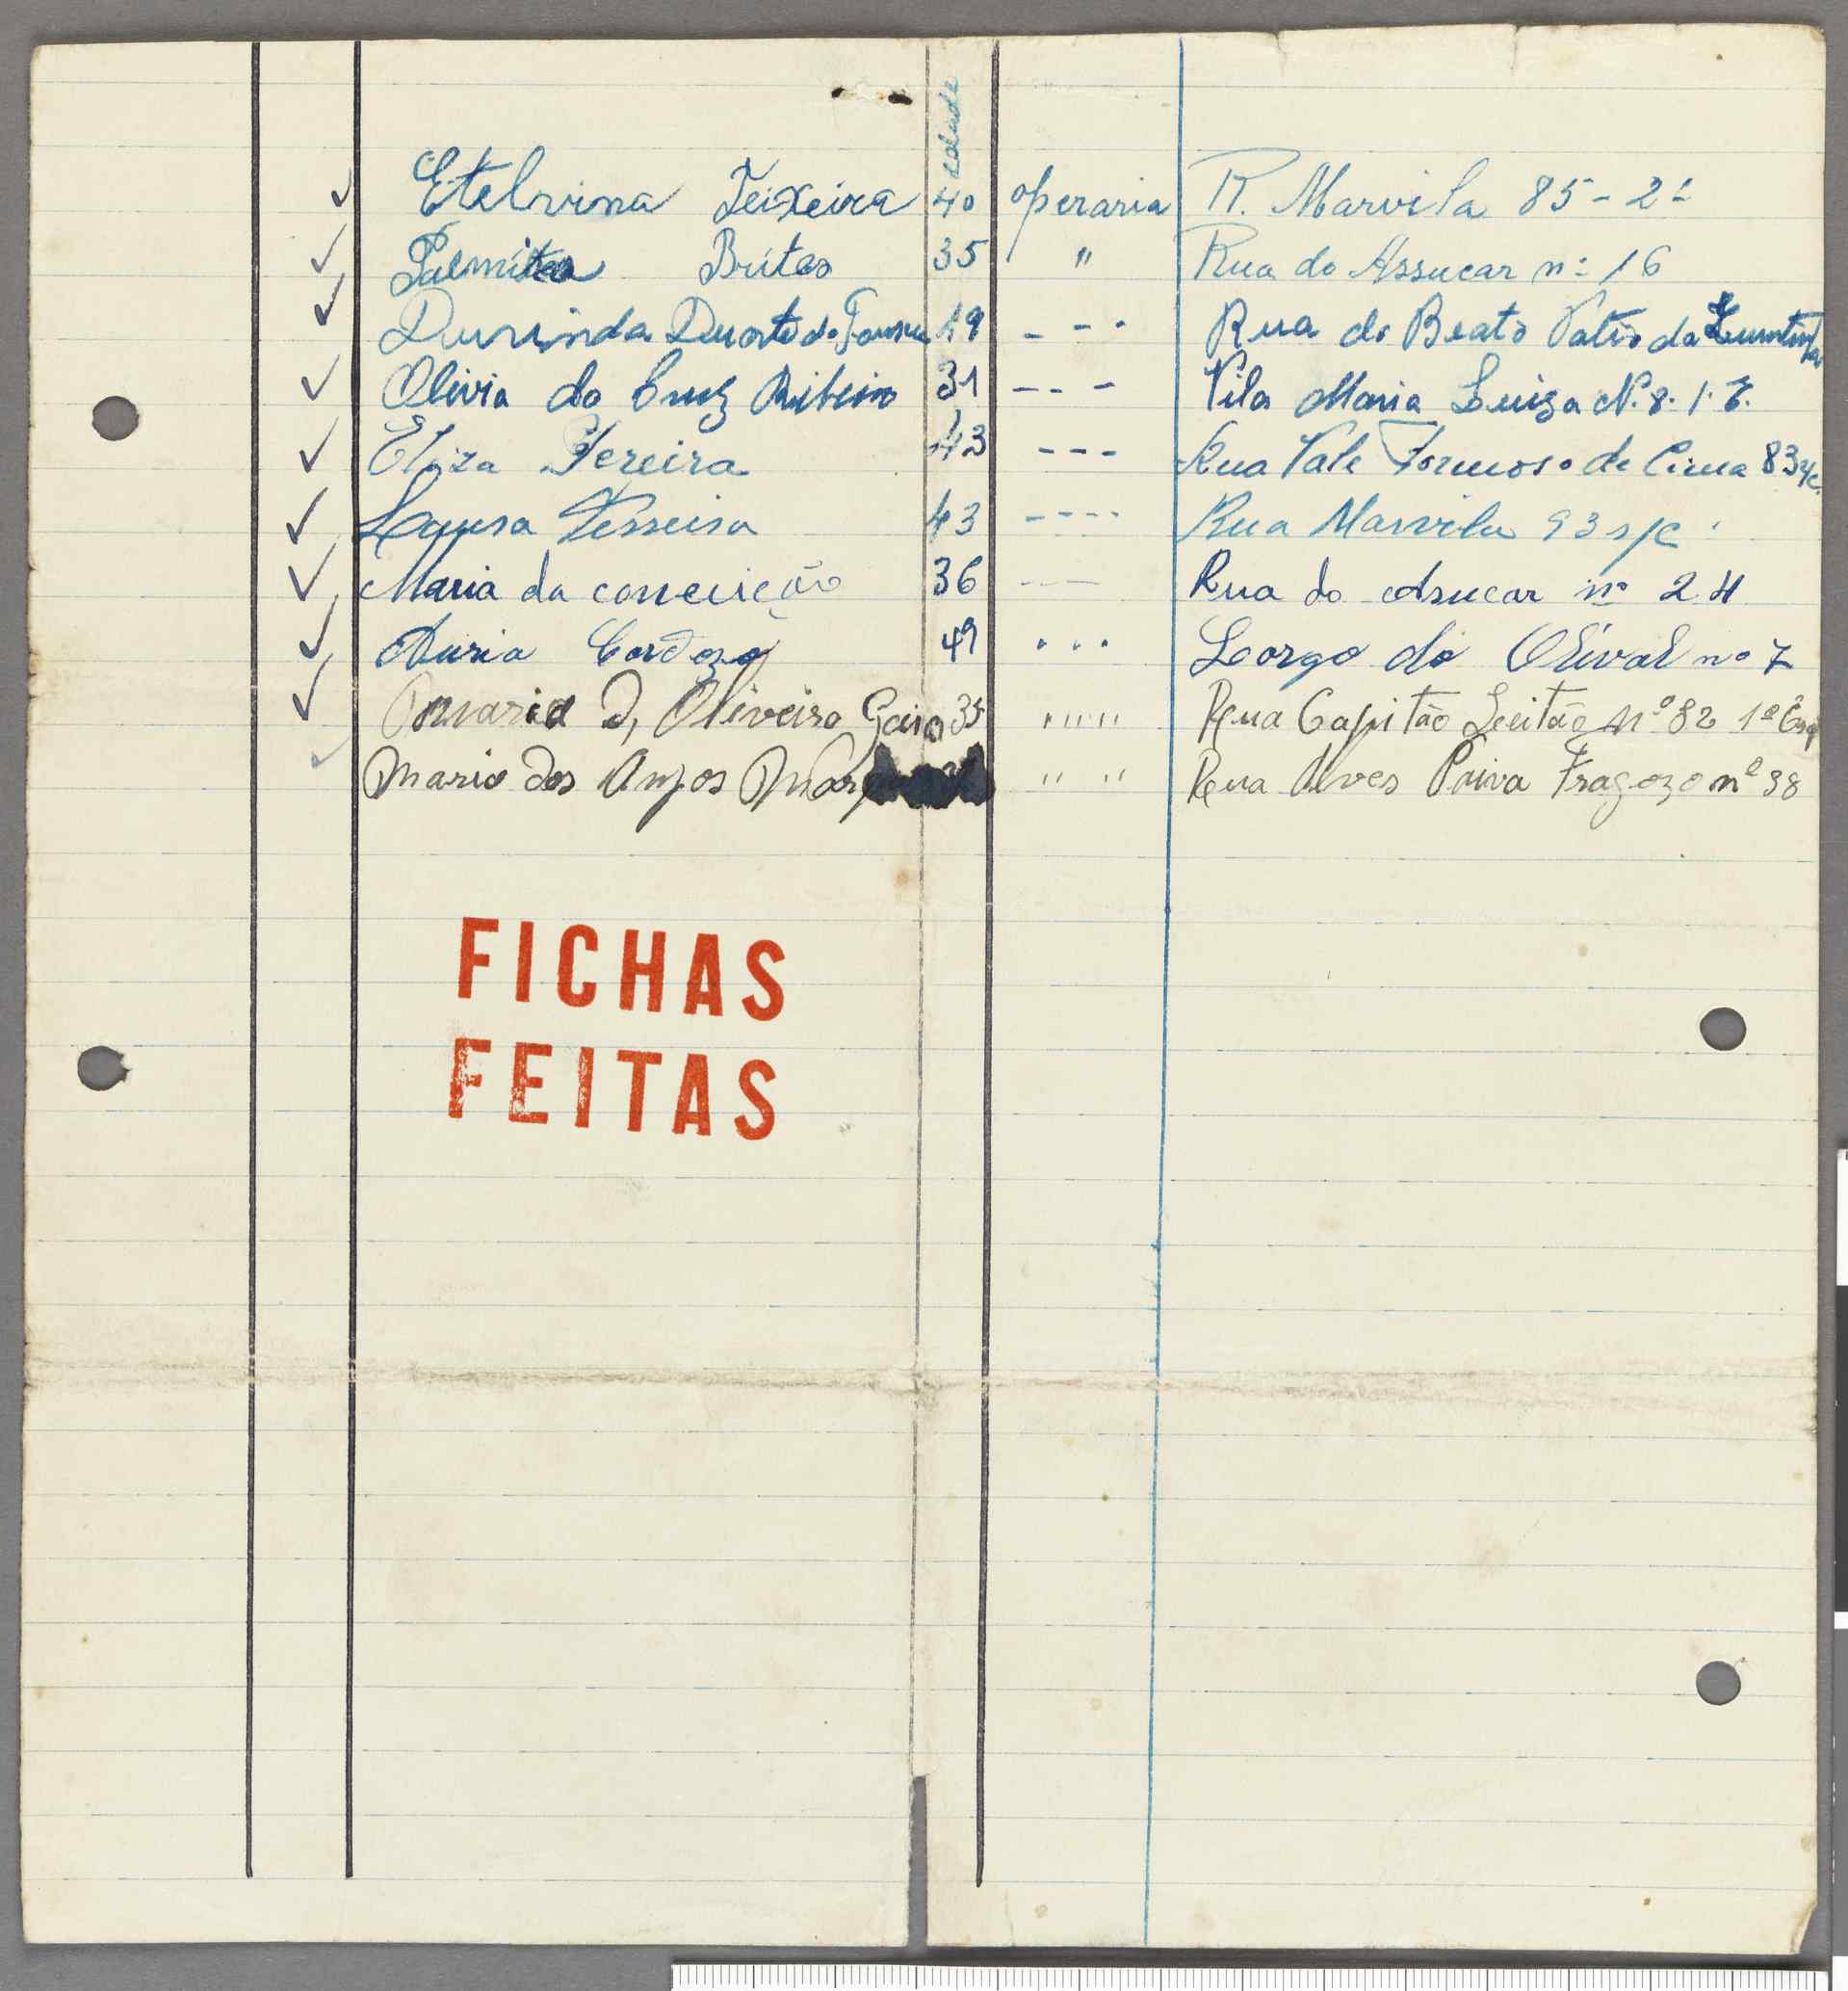 edade
✓ Etelvina Teixeira 40 operaria R. Marvila 85 - 2º
✓ Brites 35 " Rua do Assucar nº 16
✓ Durinda Duarte da 49 - - - Rua do Beato Patio da
✓ Olivia da Cruz Ribeiro 31 - - - Vila Maria Luiza N. 8. 1. E.
✓ Eliza Pereira 43 - - - Rua Vale Formoso de Cima 83 r/c.
✓ Laura 43 - - - - Rua Marvila 93 r/c
✓ Maria da conceição 36 - - Rua do Asucar nº 24
✓ Cardozo 49 " " " Largo do Olival nº 7
✓ Maria D, Oliveira 35 " " " Rua Capitão Leitão Nº 82 1º Esq
✓ Maria dos Anjos " " Rua Alves Paiva Fragozo nº 38
FICHAS
FEITAS